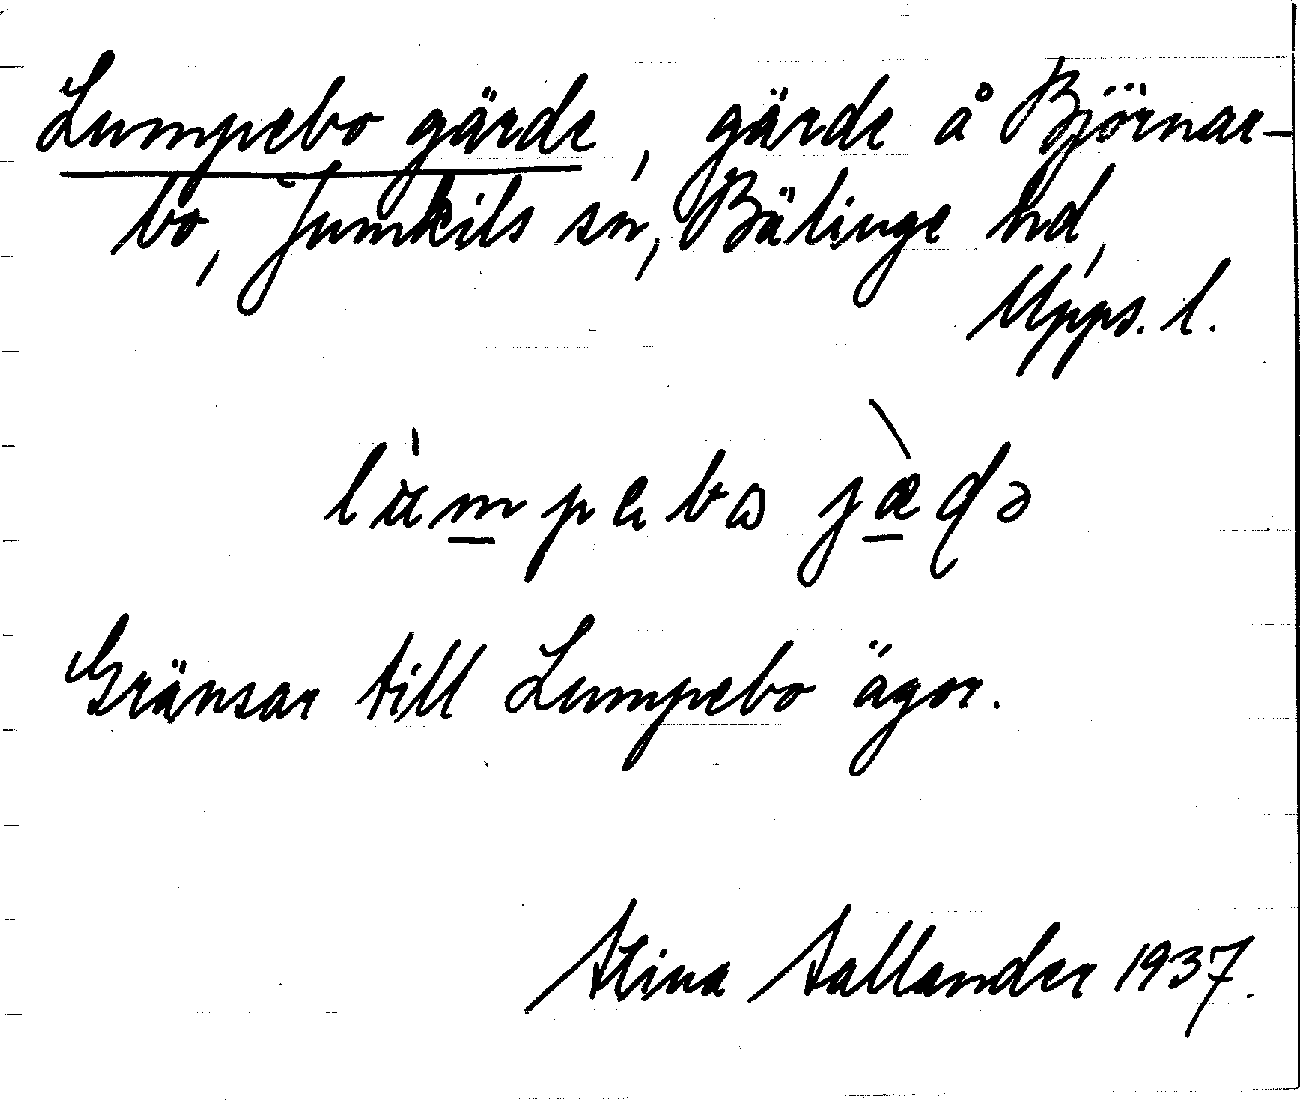 Lumpebo gärde, gärde å Björnar-
bo, Jumkils sn, Bälinge hd,
Upps. l.
Gränsar till Lumpebo ägor.
Stina Sallander 1937.